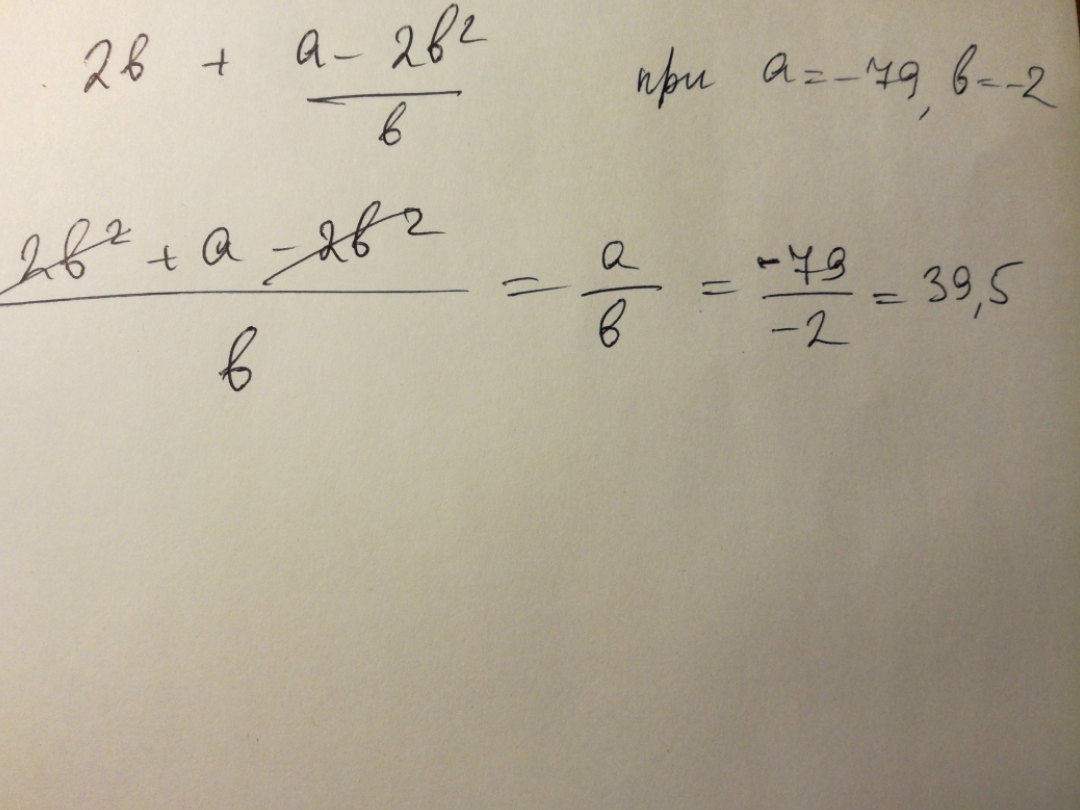 2в + (a - 2в²)/в при a = -79, в = -2
(2в² + a - 2в²)/в = a/в = -79/-2 = 39,5